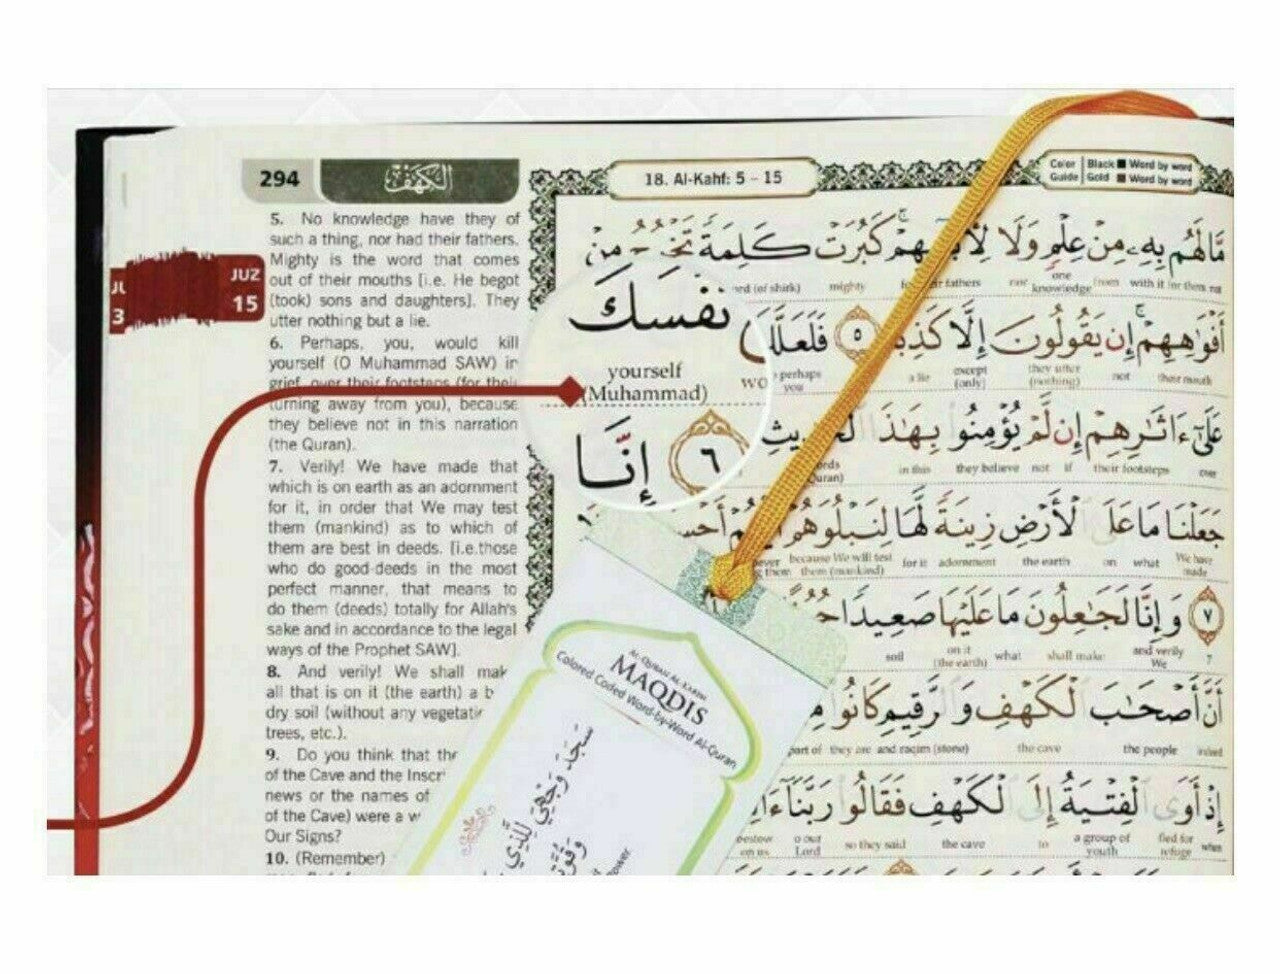 294
الكهف
18. Al-Kahf: 5 - 15
Color Guide
Black Word by word
Gold Word by word
JUZ
15
5. No knowledge have they of
such a thing, nor had their fathers.
Mighty is the word that comes
out of their mouths [i.e. He begot
(took) sons and daughters]. They
utter nothing but a lie.
6. Perhaps, you, would kill
yourself (O Muhammad SAW) in
grief, over their footsteps (for their
turning away from you), because
they believe not in this narration
(the Quran).
7. Verily! We have made that
which is on earth as an adornment
for it, in order that We may test
them (mankind) as to which of
them are best in deeds. [i.e.those
who do good deeds in the most
perfect manner, that means to
do them (deeds) totally for Allah's
sake and in accordance to the legal
ways of the Prophet SAW].
8. And verily! We shall mak
all that is on it (the earth) a b
dry soil (without any vegetati
trees, etc.).
9. Do you think that the
of the Cave and the Inscr
news or the names of
of the Cave) were a w
Our Signs?
10. (Remember)
مَّا لَهُم بِهِ مِنْ عِلْمٍ وَلَا كَبُرَتْ كَلِمَةً تَخْرُجُ مِنْ
mighty fathers one knowledge from with it for them
أَفْوَاهِهِمْ إِن يَقُولُونَ إِلَّا ٥ فَلَعَلَّكَ
perhaps you a lie except (only) they utter (nothing) not their mouth
نَفْسَكَ
yourself
(Muhammad)
عَلَىٰ ءَاثَـٰرِهِمْ إِن لَّمْ يُؤْمِنُوا بِهَـٰذَا
in this they believe not if their footsteps over
٦ إِنَّا
جَعَلْنَا مَا عَلَى الْأَرْضِ زِينَةً لَّهَا لِنَبْلُوَهُمْ
because We will test them (mankind) for it adornment the earth on what We have made
٧ وَإِنَّا لَجَـٰعِلُونَ مَا عَلَيْهَا صَعِيدًا
soil on it (the earth) what shall make and verily We 7
أَنَّ أَصْحَـٰبَ الْكَهْفِ وَالرَّقِيمِ كَانُوا
part of they are and raqim (stone) the cave the people indeed
إِذْ أَوَى الْفِتْيَةُ إِلَى الْكَهْفِ فَقَالُوا رَبَّنَا
bestow on us o our Lord so they said the cave to a group of youth fled for refuge when
AL-QURAN AL-KARIM
MAQDIS
Colored Coded Word-by-Word Al-Quran
سَجَدَ وَجْهِيَ لِلَّذِي